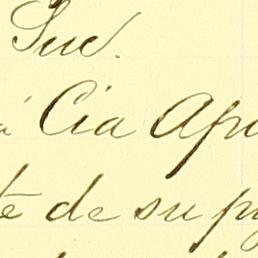 Suc.
á Cia Apo
te de su p